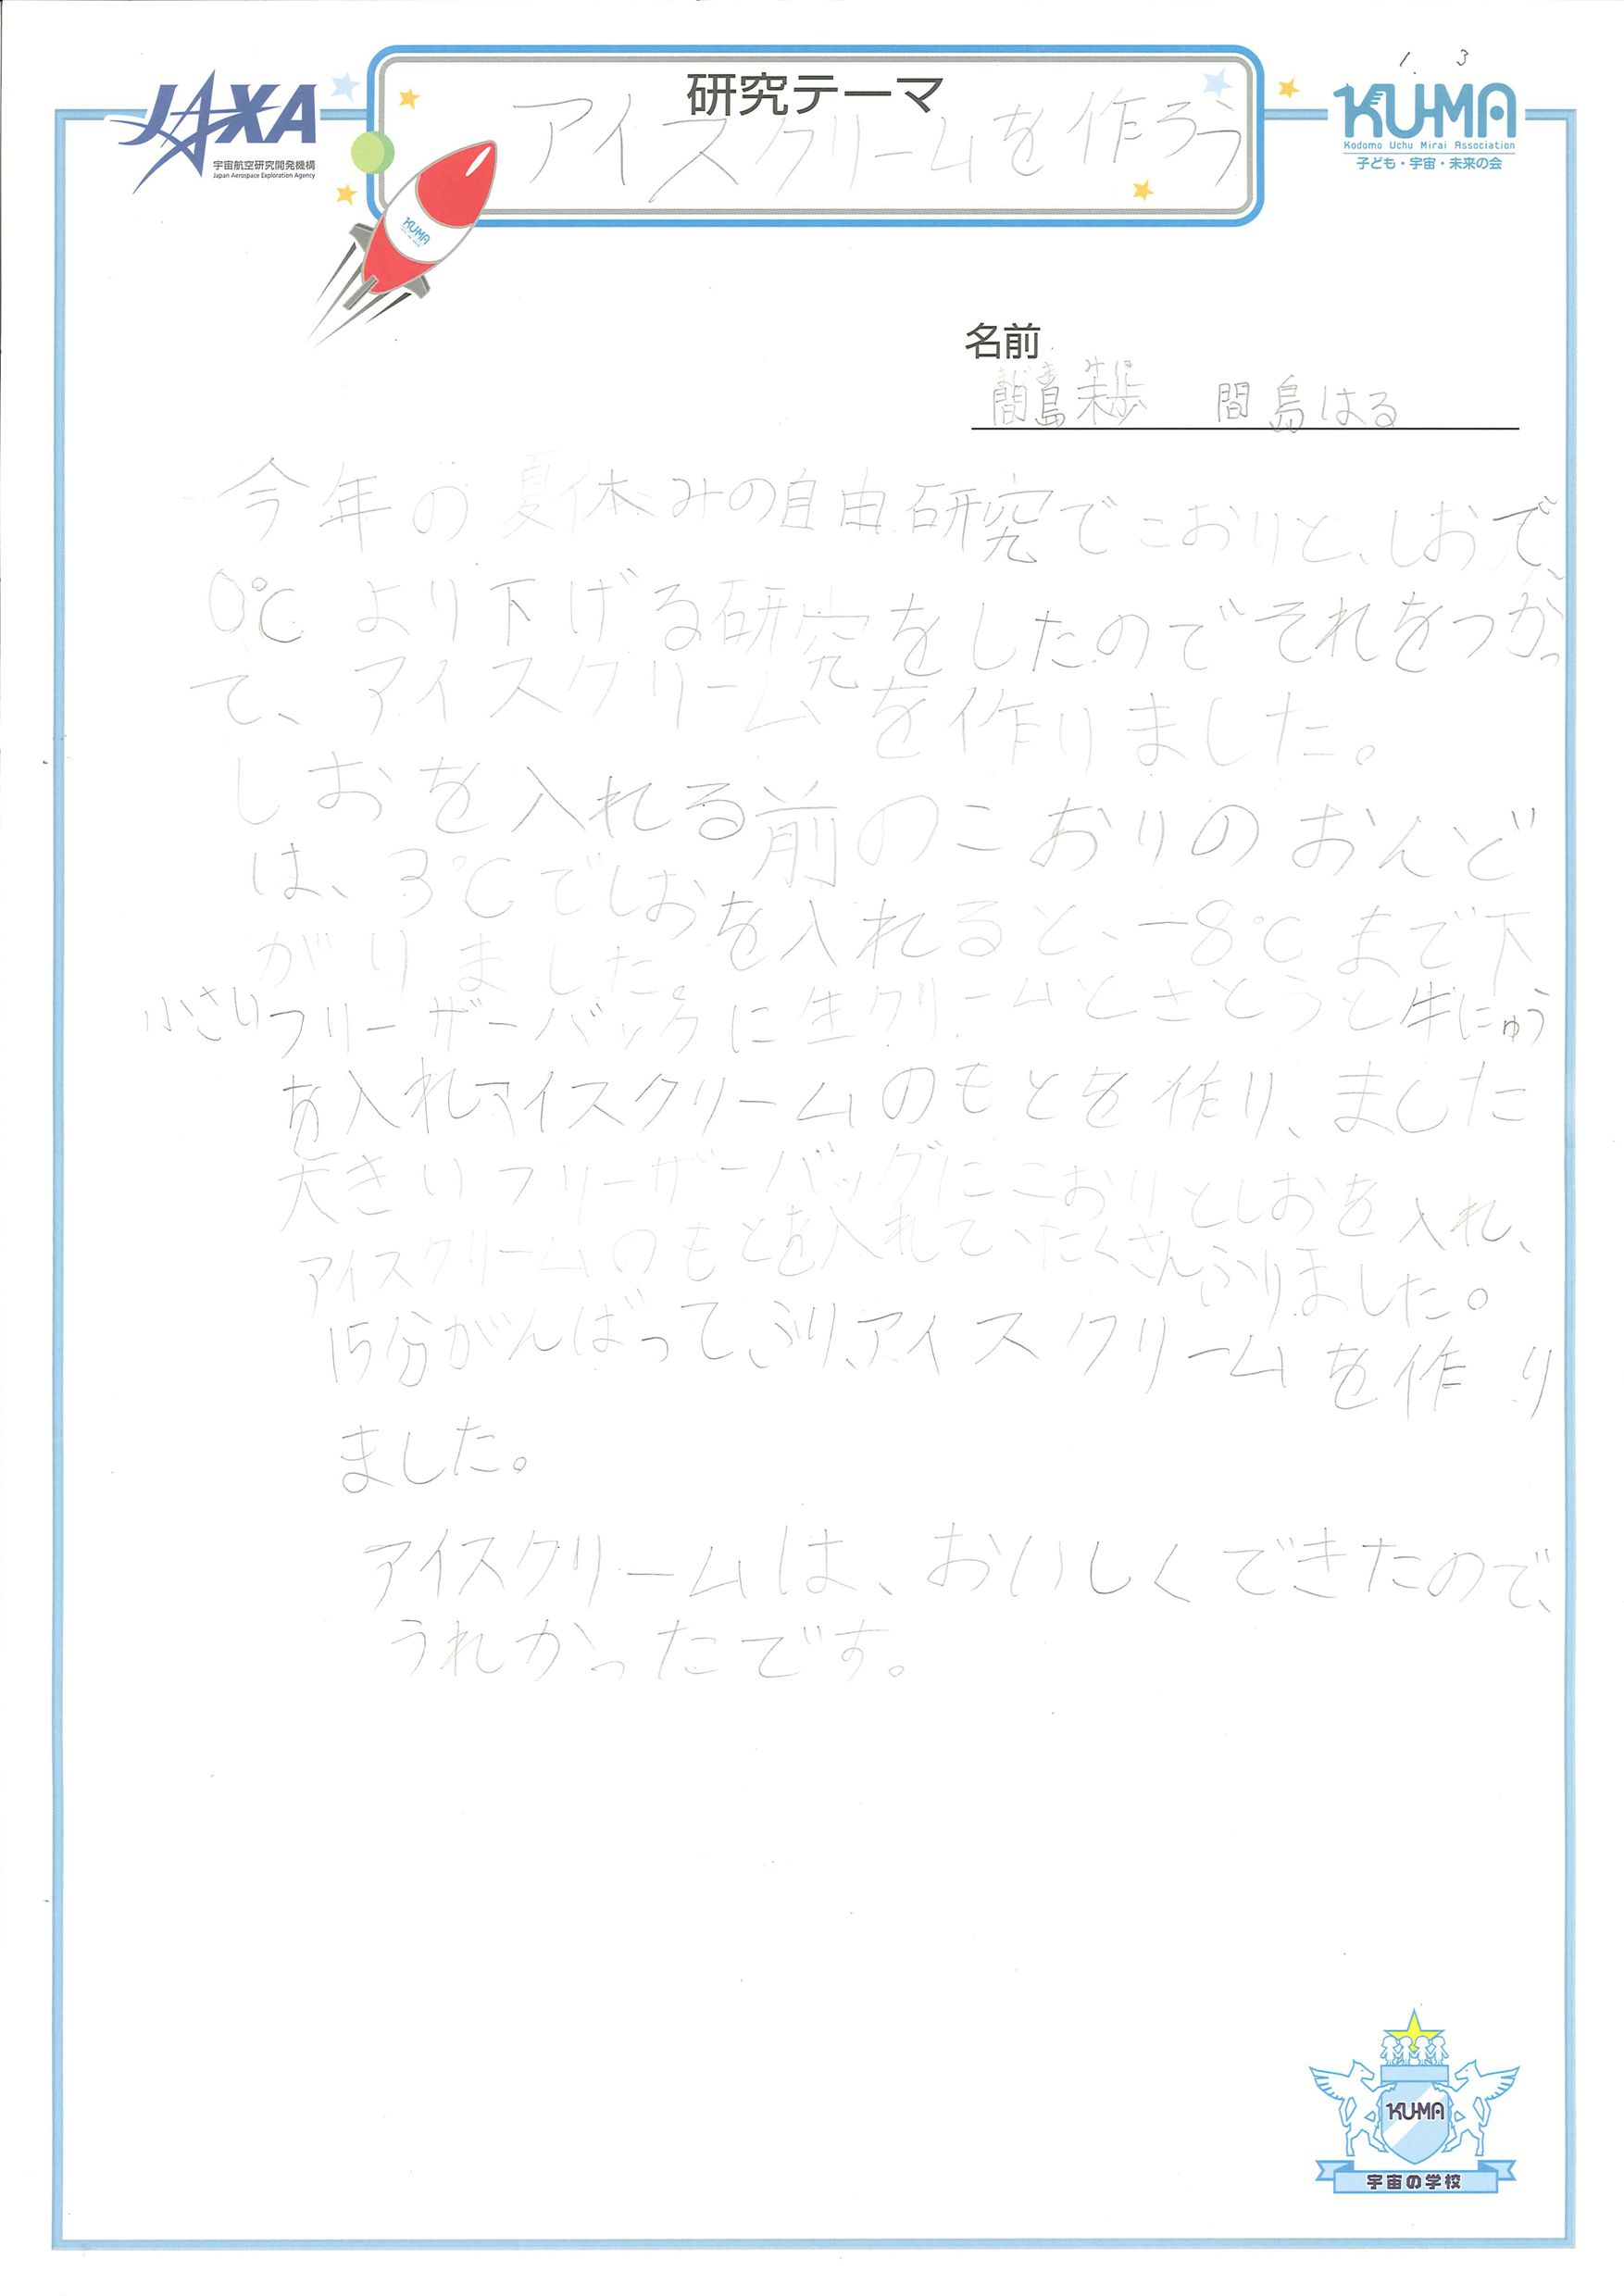 1. 3
JAXA
宇宙航空研究開発機構
Japan Aerospace Exploration Agency
研究テーマ
アイスクリームを作ろう
KU-MA
Kodomo Uchu Mirai Association
子ども・宇宙・未来の会
KU-MA
名前
間島 間島はる
今年の夏休みの自由研究でこおりと、しおで、
0℃より下げる研究をしたのでそれをつかっ
て、アイスクリームを作りました。
しおを入れる前のこおりのおんど
は、3℃でしおを入れると、-8℃まで下
がりました。
小さいフリーザーバックに生クリームとさとうと牛にゅう
を入れアイスクリームのもとを作り、ました
大きいフリーザーバッグにこおりとしおを入れ、
アイスクリームのもとを入れて、たくさんふりました。
15分がんばってふり、アイスクリームを作り
ました。
アイスクリームは、おいしくできたので、
うれかったです。
KU-MA
宇宙の学校